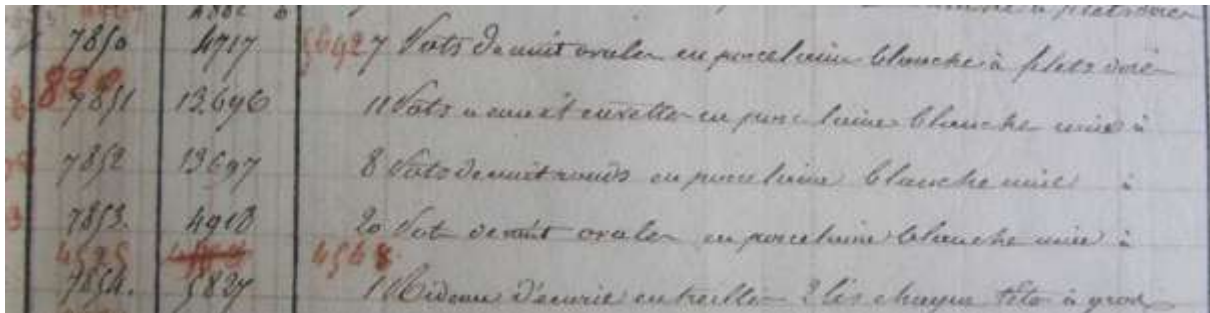 7850 4717 5692 7 Vots de nuit ovales en porcelaine blanche à filets dorés
839
7851 13.696 11 Vots à cuvettes en porcelaine blanche unie à
7852 13697 8 Vots de nuit ronds en porcelaine blanche unie à
7853. 4918 20 Vots de nuit ovales en porcelaine blanche unie à
4595 4548.
7854. 5827 1 Rideau d'écurie en treillis 2 lés chaque tête à